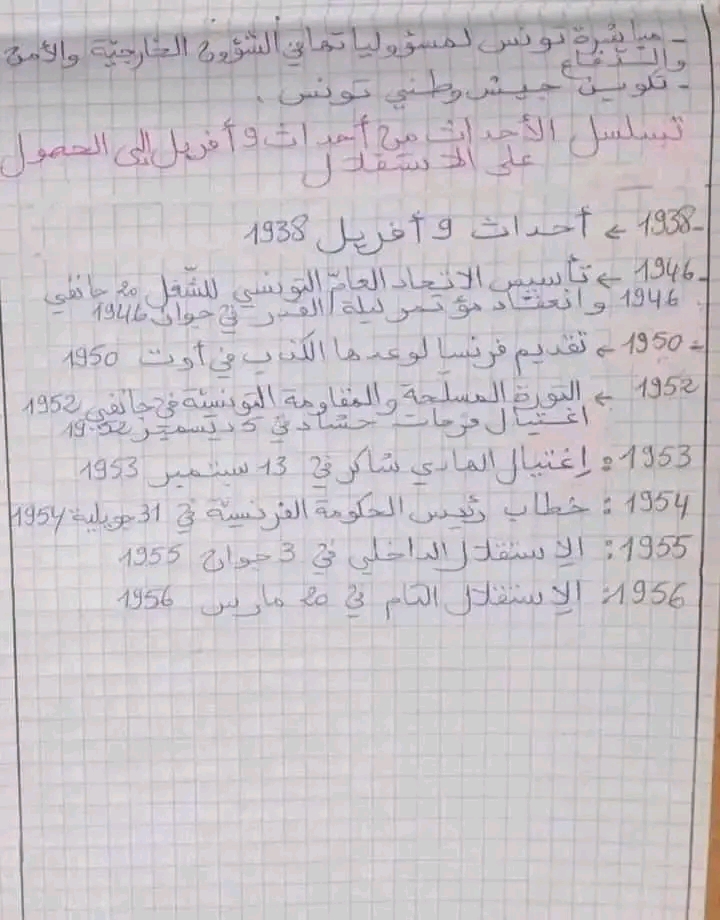 - مباشرة تونس لمسؤولياتها في الشؤون الخارجيّة والأمن
والدفاع
- تكوين جيش وطني تونسي .
تسلسل الأحداث من أحداث 9 أفريل إلى الحصول
على الاستقلال
- 1938 ← أحداث 9 أفريل 1938
- 1946 ← تأسيس الاتحاد العامّ التونسي للشّغل 20 جانفي
1946 وانعقاد مؤتمر ليلة القدر في جوان 1946
- 1950 ← تقديم فرنسا لوعدها الكذب في أوت 1950
1952 ← الثورة المسلّحة والمقاومة التونسيّة في جانفي 1952
اغتيال فرحات حشاد في 5 ديسمبر 1952
1953 : إغتيال الهادي شاكر في 13 سبتمبر 1953
1954 : خطاب رئيس الحكومة الفرنسيّة في 31 جويلية 1954
1955 : الإستقلال الداخلي في 3 جوان 1955
1956 : الإستقلال التام في 20 مارس 1956